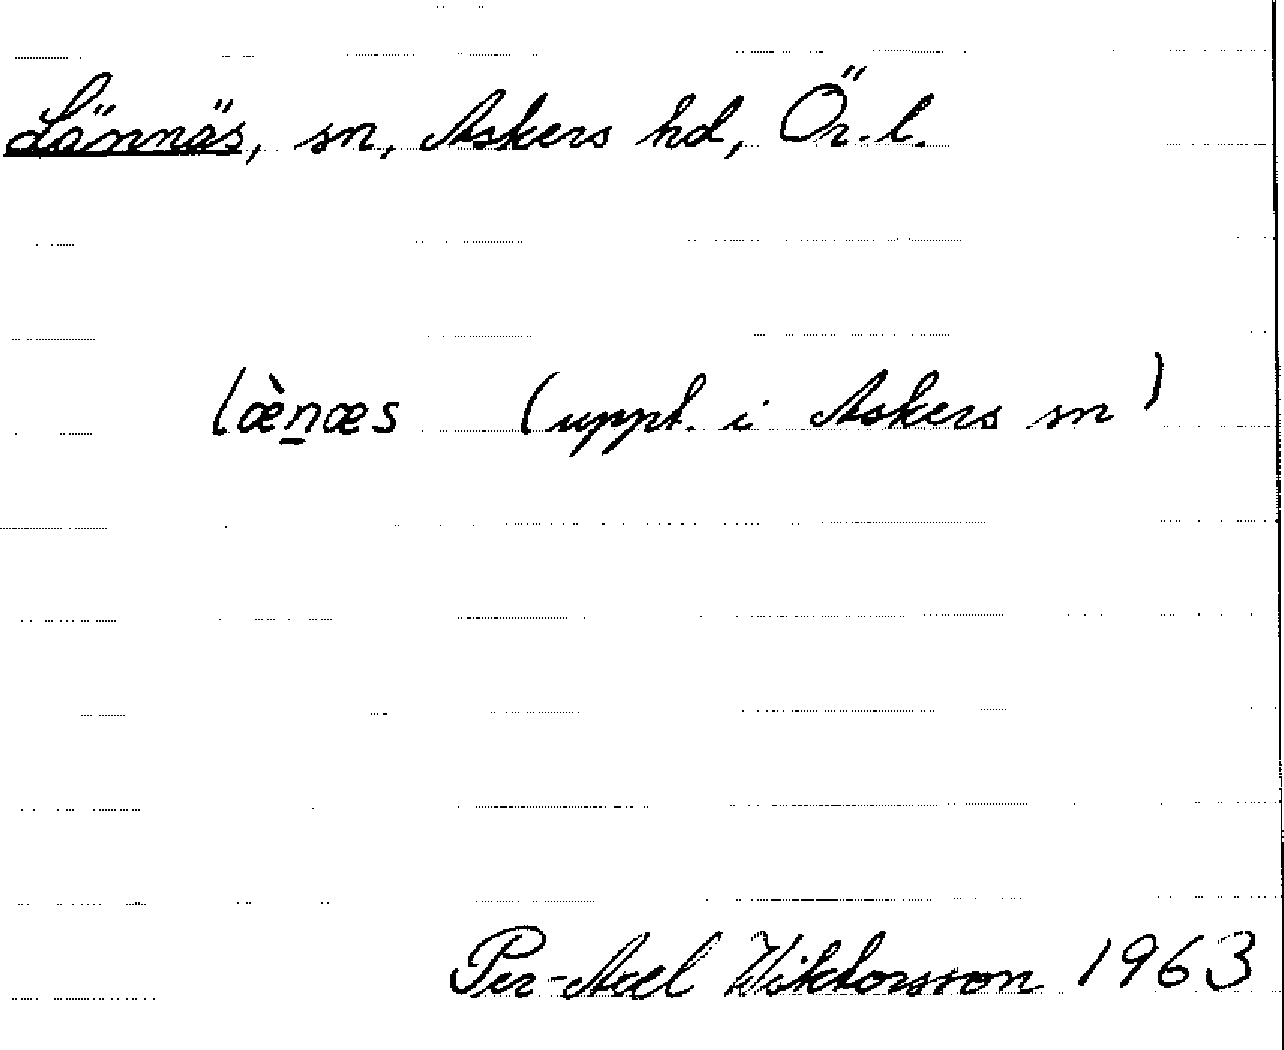 Lännäs, sn, Askers hd, Ör. l.
læ̀n̲æs (uppt. i Askers sn)
Per-Axel Wiktorsson 1963